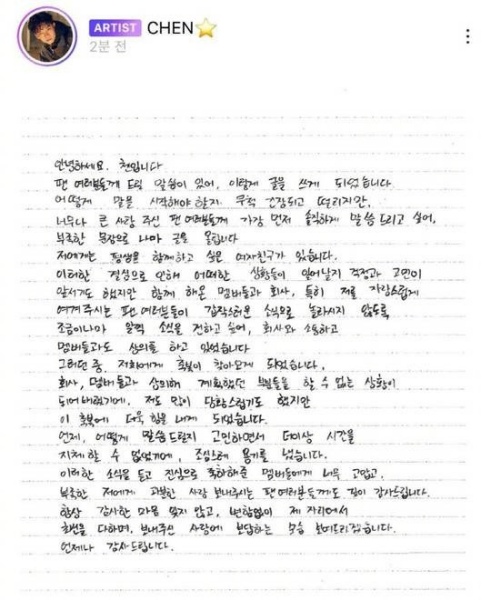 ARTIST CHEN⭐
2분 전
안녕하세요. 첸입니다
팬 여러분들께 드릴 말씀이 있어, 이렇게 글을 쓰게 되었습니다.
어떻게 말을 시작해야 할지 무척 긴장되고 떨리지만,
너무나 큰 사랑 주신 팬 여러분들께 가장 먼저 솔직하게 말씀 드리고 싶어,
부족한 문장으로 나마 글을 올립니다
저에게는 평생을 함께하고 싶은 여자친구가 있습니다.
이러한 결심으로 인해 어떠한 상황들이 일어날지 걱정과 고민이
앞서기도 했지만 함께 해온 멤버들과 회사, 특히 저를 자랑스럽게
여겨주시는 팬 여러분들이 갑작스러운 소식으로 놀라시지 않도록
조금이나마 일찍 소식을 전하고 싶어, 회사와 소통하고
멤버들과도 상의를 하고 있었습니다
그러던 중, 저희에게 축복이 찾아오게 되었습니다.
회사, 멤버들과 상의해 계획했던 부분들을 할 수 없는 상황이
되어버렸기에, 저도 많이 당황스럽기도 했지만
이 축복에 더욱 힘을 내게 되었습니다.
언제, 어떻게 말씀드릴지 고민하면서 더이상 시간을
지체할 수 없었기에, 조심스레 용기를 냈습니다.
이러한 소식을 듣고 진심으로 축하해준 멤버들에게 너무 고맙고,
부족한 저에게 과분한 사랑 보내주시는 팬 여러분들께도 깊이 감사드립니다.
항상 감사한 마음 잊지 않고, 변함없이 제 자리에서
최선을 다하며, 보내주신 사랑에 보답하는 모습 보여드리겠습니다.
언제나 감사드립니다.